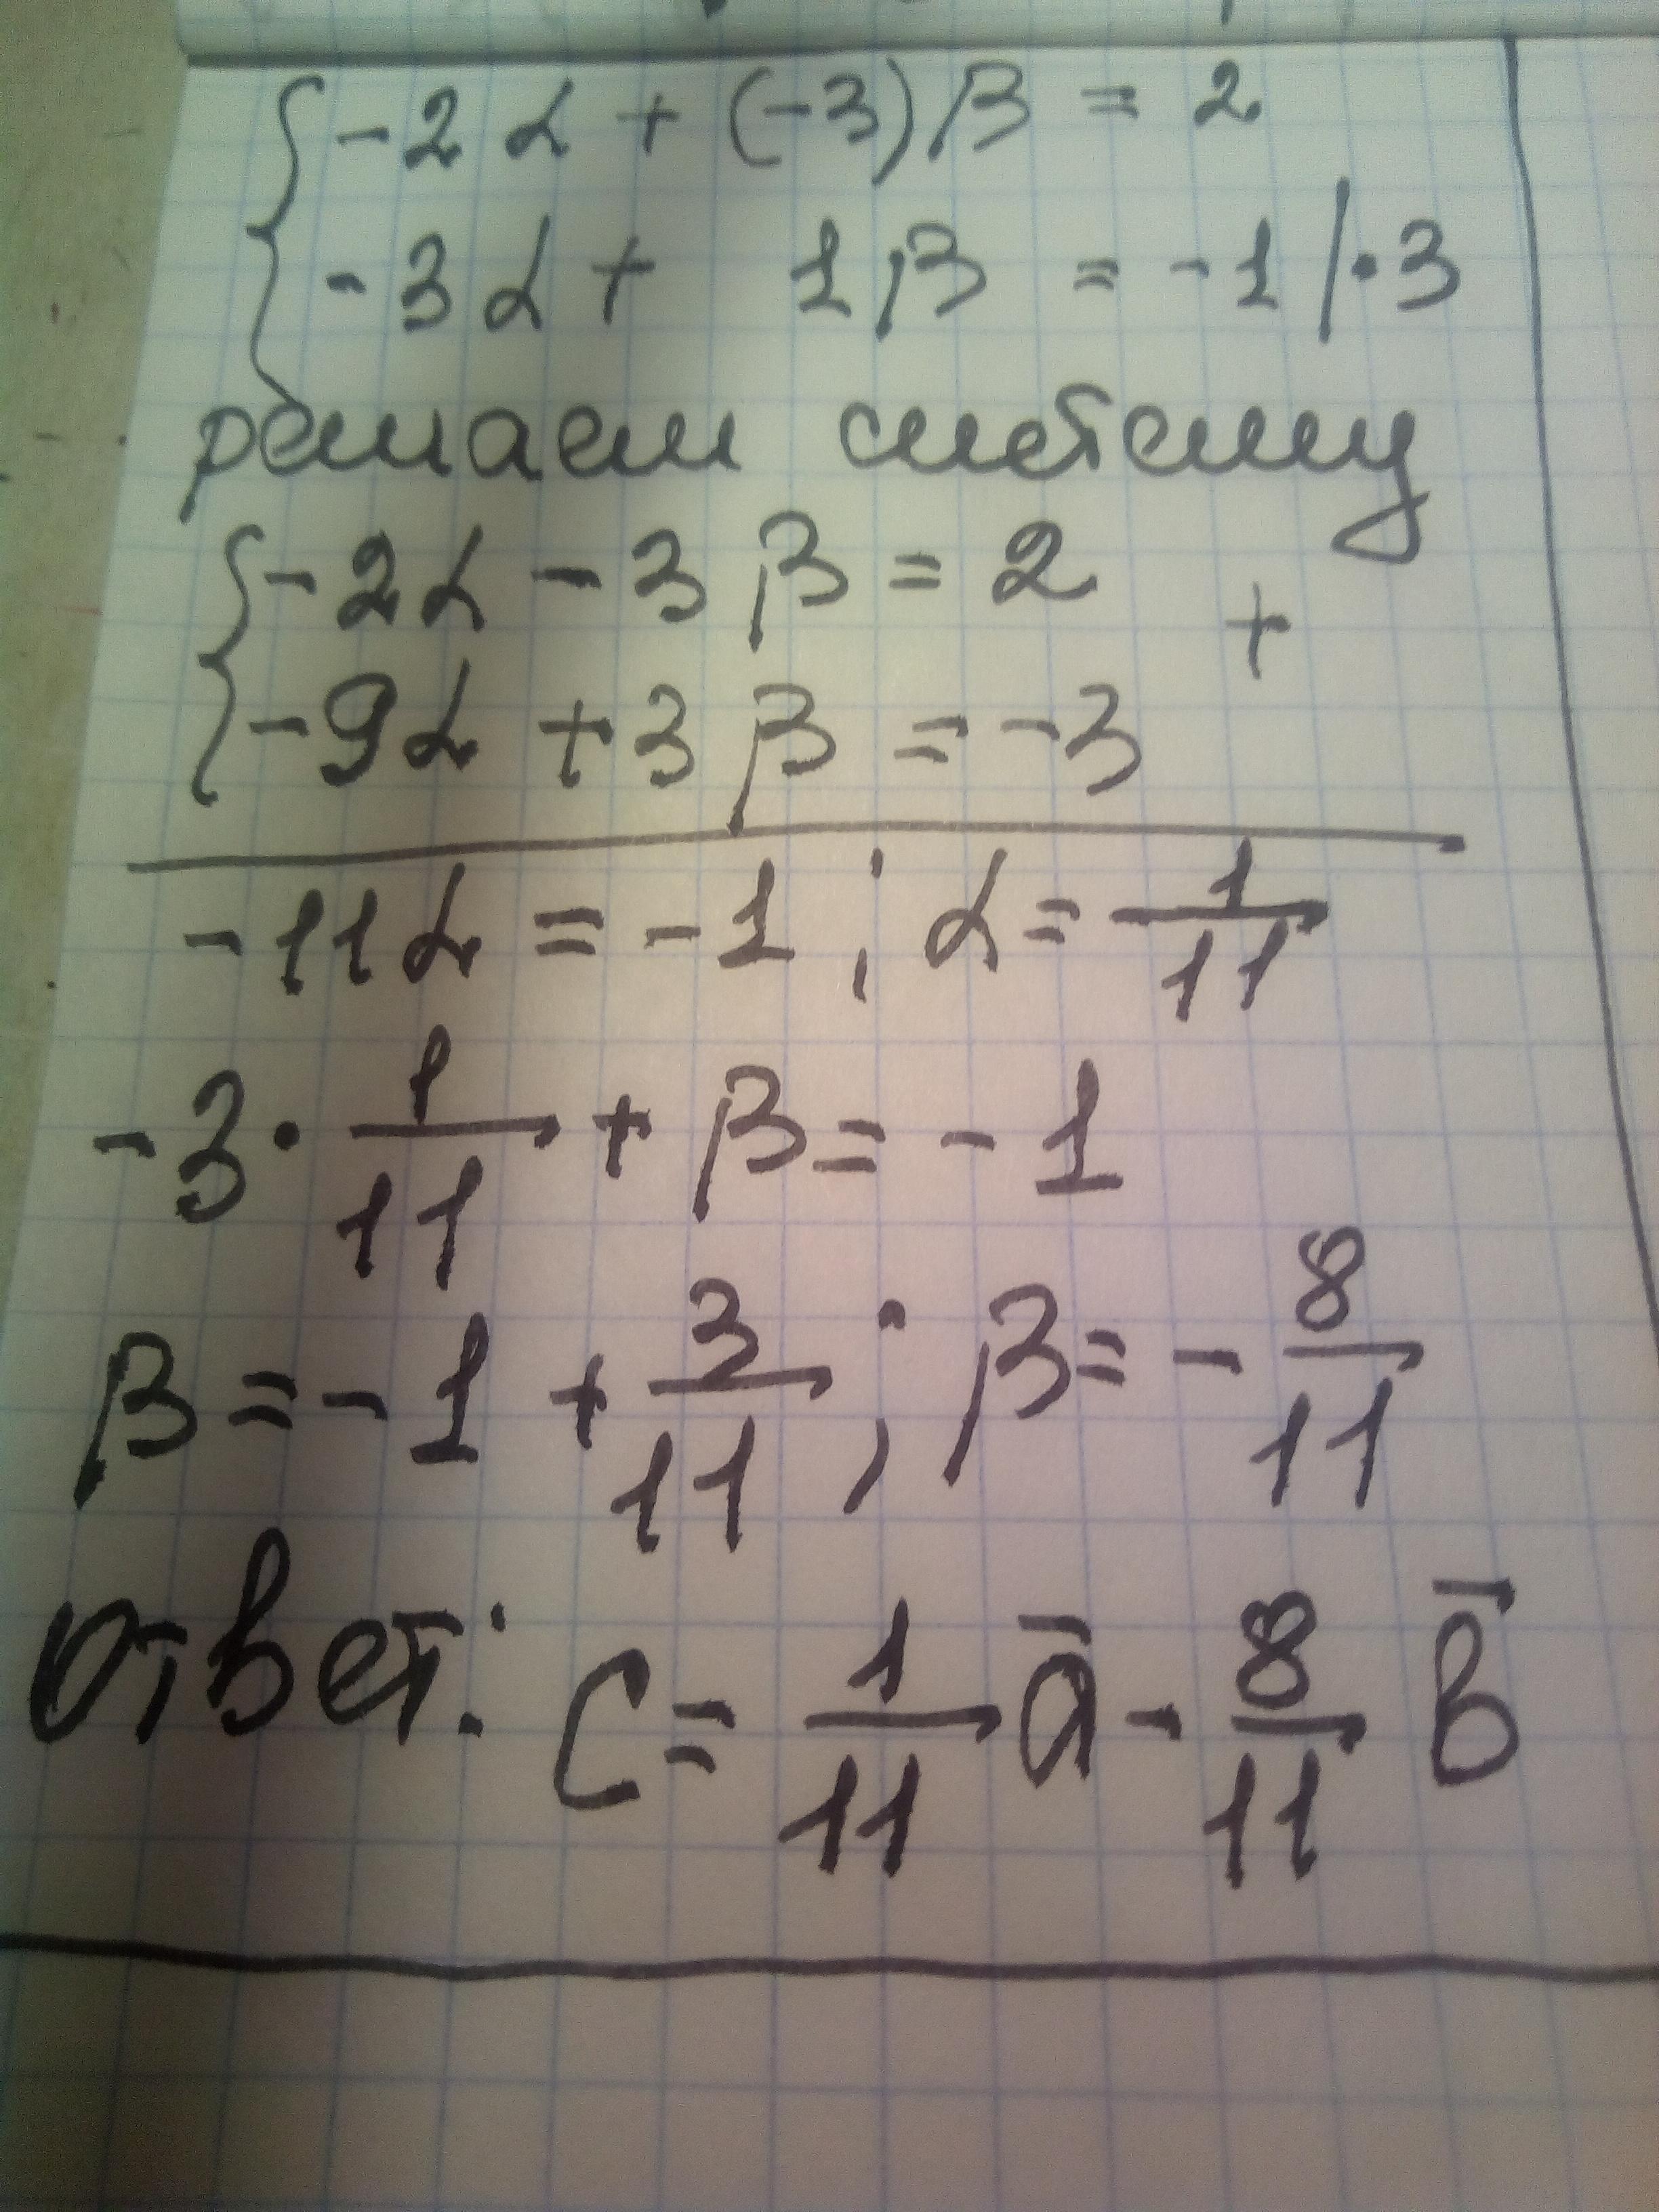 { -2α + (-3)β = 2
-3α + 1β = -1 / · 3
решаем систему
{ -2α - 3β = 2
+
-9α + 3β = -3
-11α = -1 ; α = 1/11
-3 · 1/11 + β = -1
β = -1 + 3/11 ; β = - 8/11
ответ: c = 1/11 a̅ - 8/11 b̅